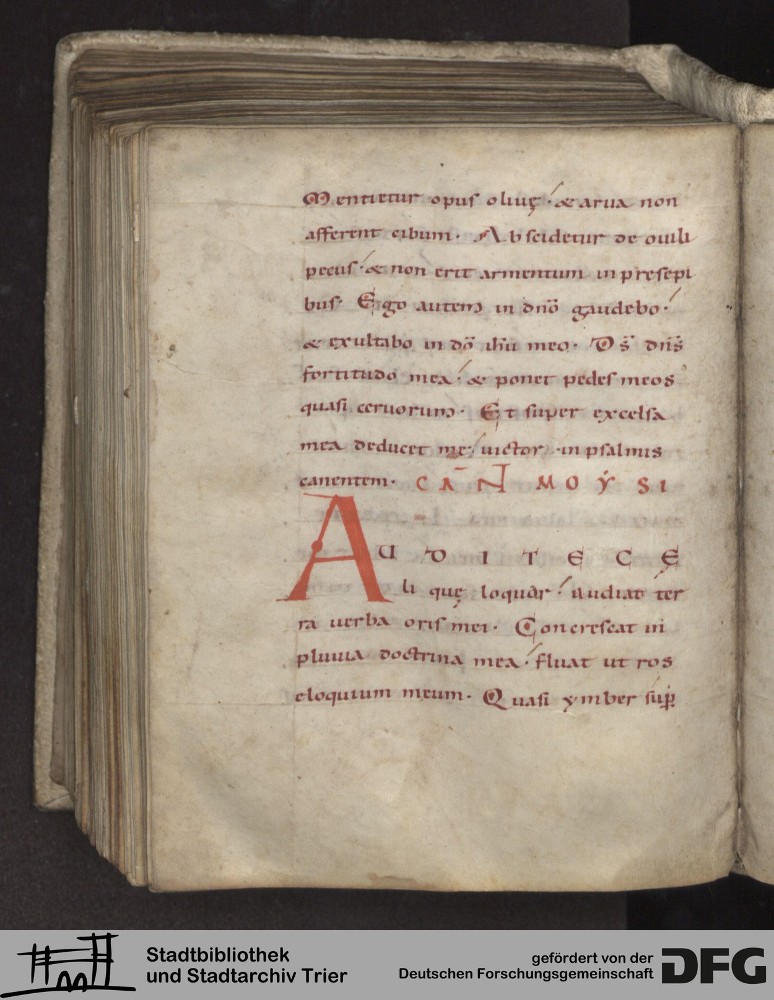 Mentietur opus oliuę· & arua non
afferent cibum· Abscidetur de ouili
pecus· & non erit armentum in presepi
bus· Ego autem in dn̄o gaudebo·
& exultabo in dō ih̄u meo· D̄s dn̄s
fortitudo mea· & ponet pedes meos
quasi ceruorum· Et super excelsa
mea deducet me· uictor in psalmis
canentem· CAN̄ MOYSI
AUDITE CĘ
li quę loquar· audiat ter
ra uerba oris mei· Concrescat in
pluuia doctrina mea· fluat ut ros
eloquium meum· Quasi ymber sup̄
Stadtbibliothek
und Stadtarchiv Trier
gefördert von der
Deutschen Forschungsgemeinschaft
DFG